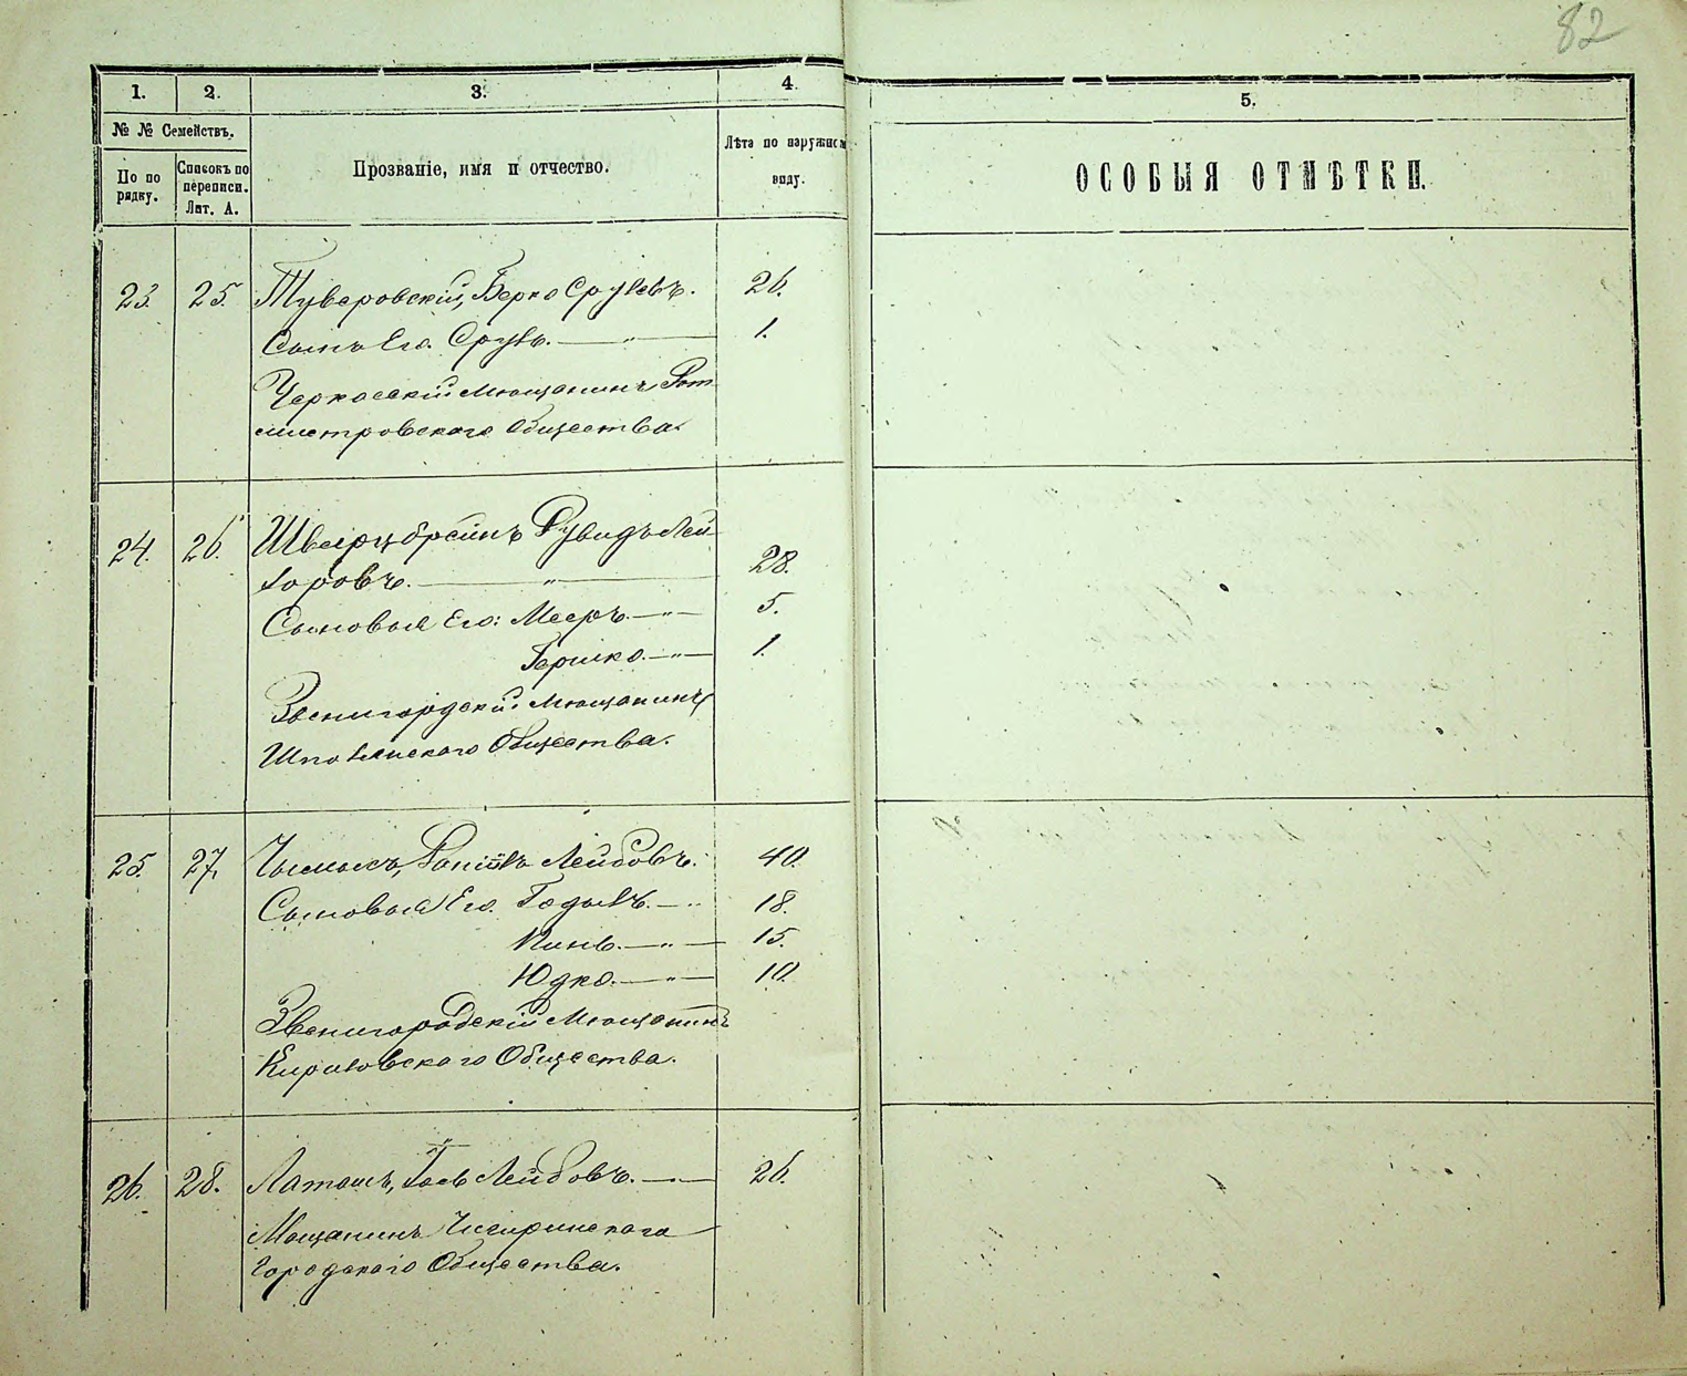 82
1. 2. 3. 4. 5.
№ № Семействъ.
По по рядку.
Списокъ по переписи. Лит. А.
Прозваніе, имя и отчество.
Лѣта по наружном виду.
ОСОБЫЯ ОТМѢТКИ.
23. 25. Туверовскій, Берко Срулевъ. 26.
Сынъ Его. Сруль. — „ — 1.
Черкасскій Мѣщанинъ Рот
мистровскаго Общества.
24. 26. Шварцбрейнъ Рувидъ Лей
зоровъ. — „ — 28.
Сыновья Его: Мееръ. — „ — 5.
Гершко. — „ — 1.
Звенигородскій Мѣщанинъ
Шполянскаго Общества.
25. 27. Лейбовъ. 40.
Сыновья Его. Годыль. — „ 18.
Пинь. — „ — 15.
Юдко. — „ — 10.
Звенигородскій Мѣщанинъ
Кириловскаго Общества.
26. 28. Латашъ, Гось Лейбовъ. — „ — 26.
Мѣщанинъ Чигиринскаго
Городскаго Общества.